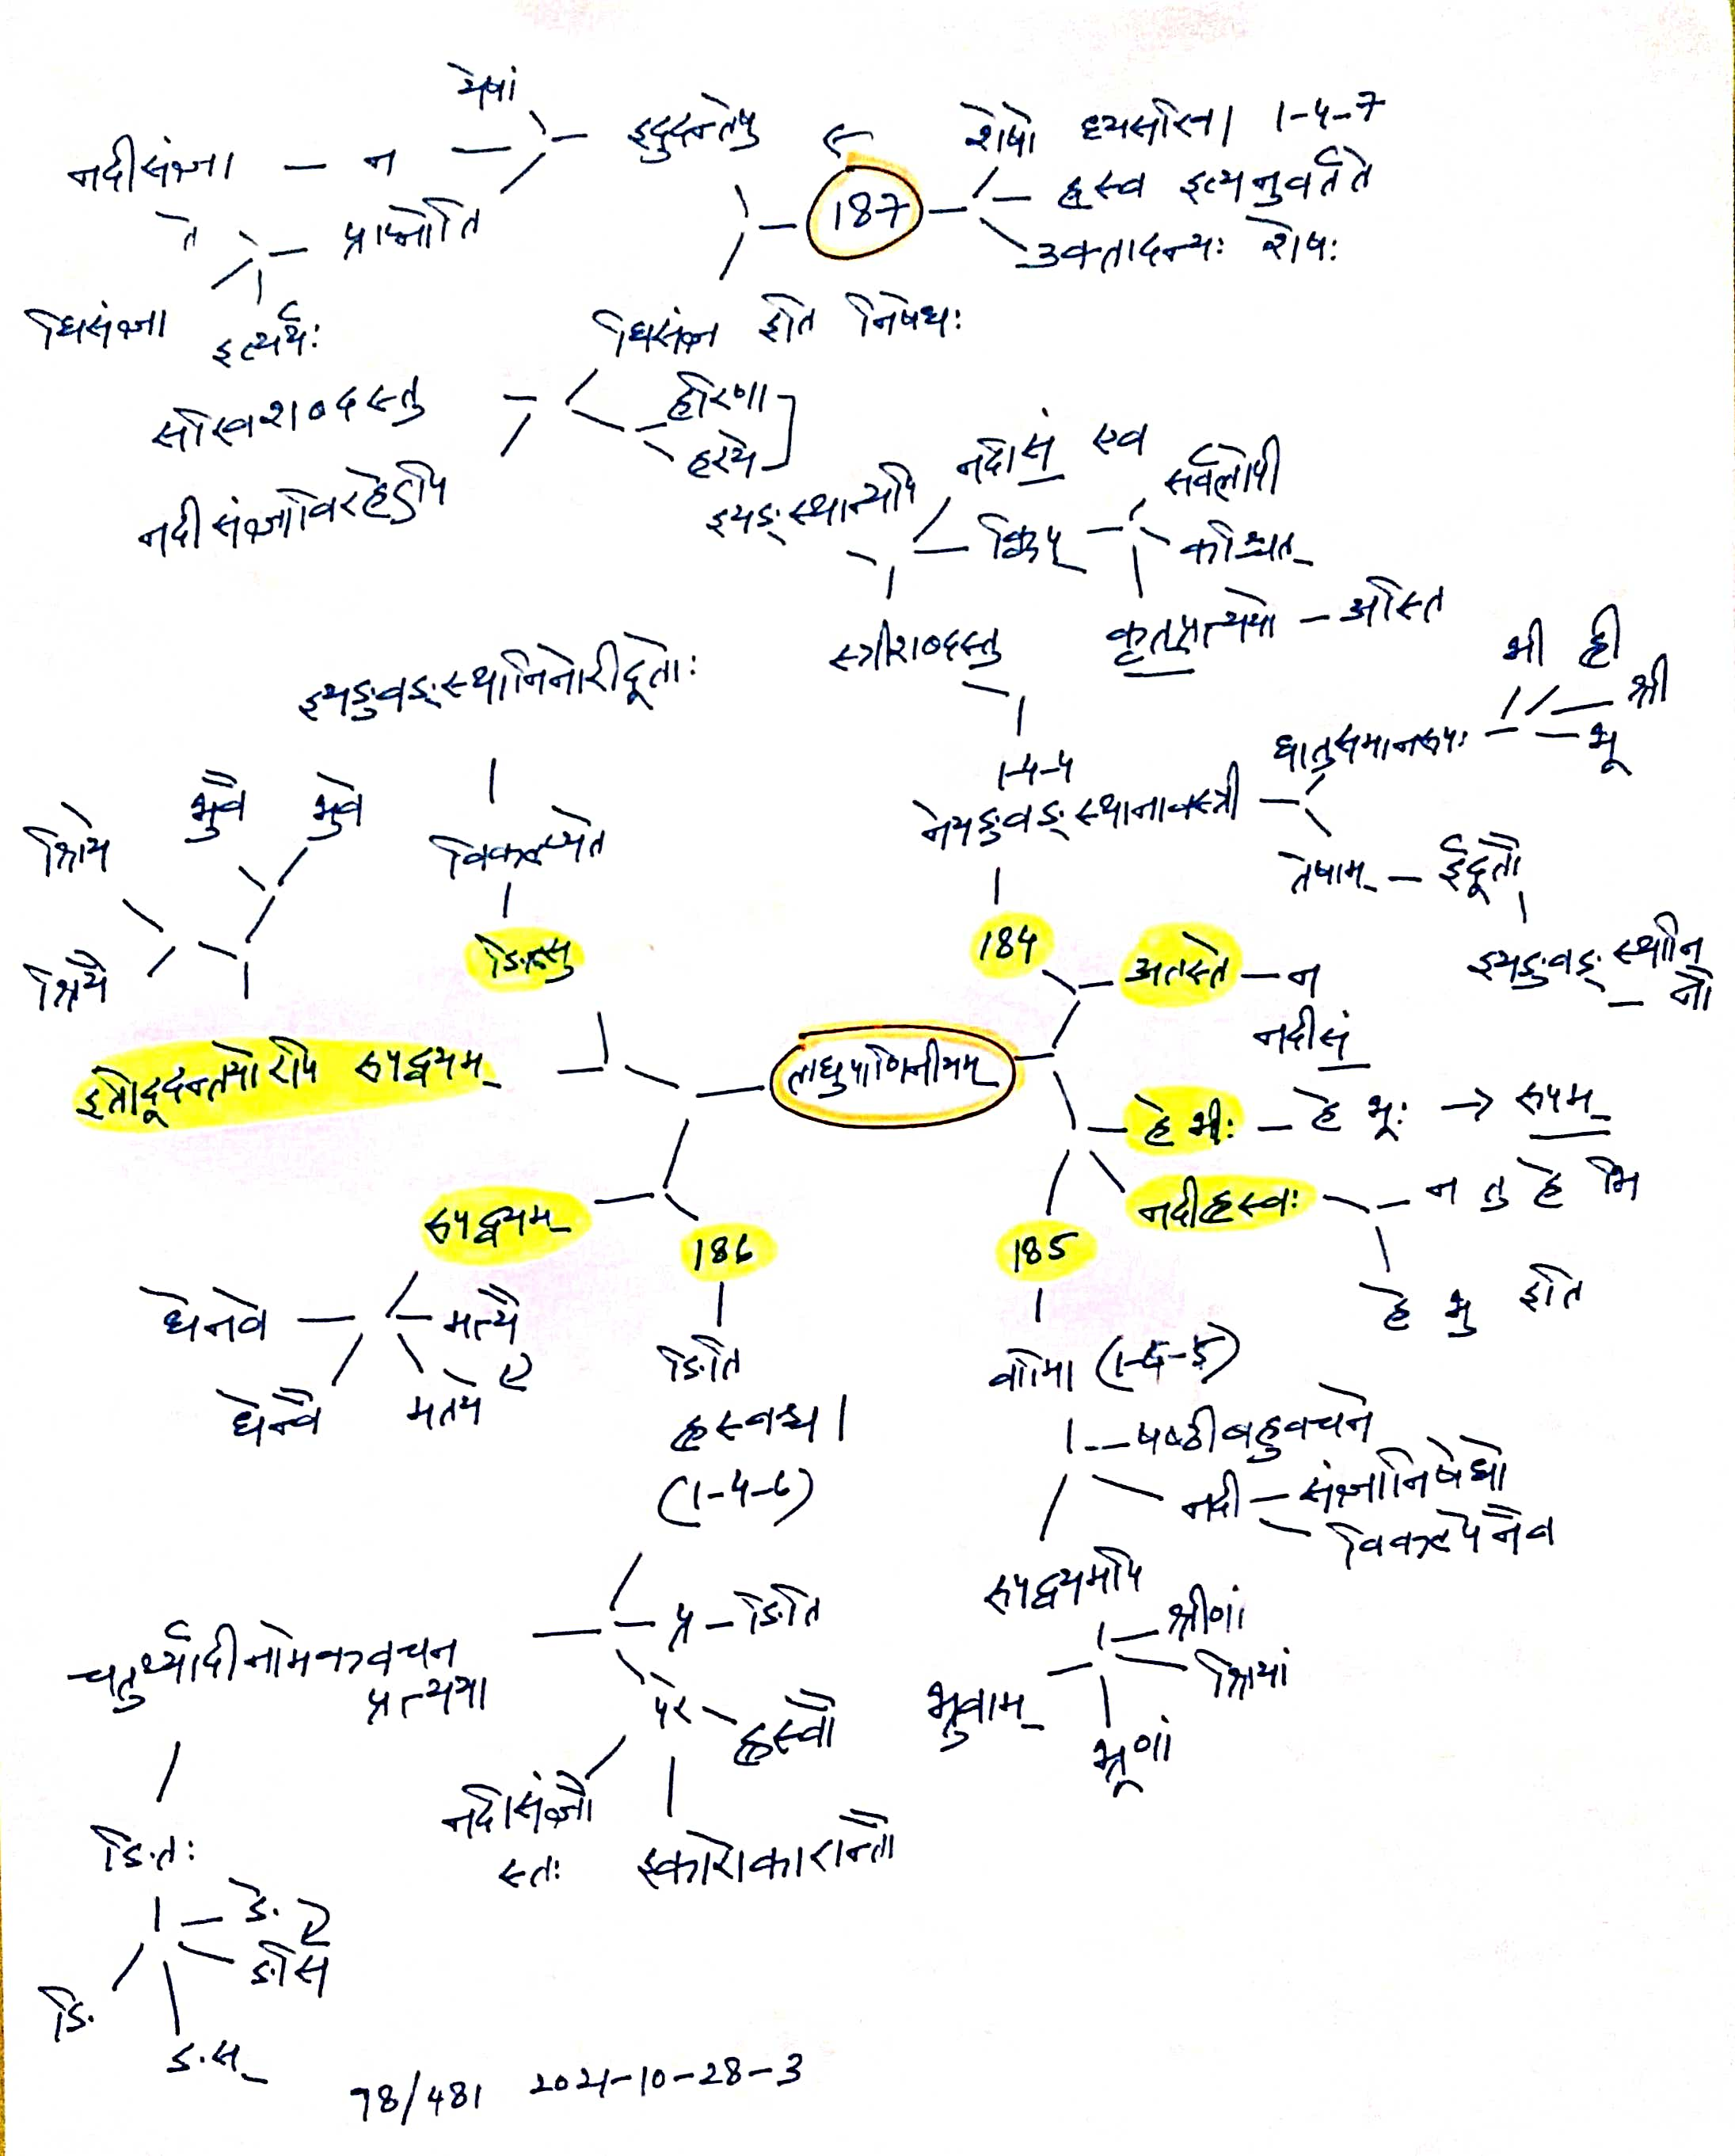 येषां
इदुदन्तेषु
शेषो घ्यसखि। 1-4-7
नदीसंज्ञा — न
187
ह्रस्व इत्यनुवर्तते
ते
प्राप्नोति
उक्तादन्यः शेषः
घिसंज्ञा
इत्यर्थः
घिसंज्ञ इति निषेधः
सखिशब्दस्तु
हरिणा
हरये
नदीसंज्ञाविरहेऽपि
नदीसं एव
इयङ्स्थान्यपि
क्विप्
सर्वलोपी
कश्चित्
स्त्रीशब्दस्तु
कृत्प्रत्ययो — अस्ति
इयङुवङ्स्थानिनोरीदूतोः
भी ह्री
श्री
भू
धातुसमानरूपाः
1-4-4
नेयङुवङ्स्थानावस्त्री
तेषाम् — ईदूतौ
इयङुवङ्स्थानि
नौ
श्रिये
भ्रुवै भ्रुवे
विकल्प्येते
श्रियै
ङित्सु
184
अतस्ते — न
नदीसं
ईदूदन्तयोरपि रूपद्वयम्
लघुपाणिनीयम्
हे भीः — हे भूः → रूपम्
नदीह्रस्वः
न तु हे भि
हे भु इति
रूपद्वयम्
186
185
धेनवे
मत्यै
ए
धेन्वै
मतये
ङिति
ह्रस्वश्च।
(1-4-6)
वामि (1-4-5)
षष्ठीबहुवचने
नदी — संज्ञानिषेधो
विकल्पेनैव
रूपद्वयमपि
श्रीणां
श्रियां
भ्रुवाम्
भ्रूणां
प्र — ङिति
चतुर्थ्यादीनामेकवचन
प्रत्यया
परे
ह्रस्वौ
नदीसंज्ञौ
स्तः
इकारोकारान्तौ
ङितः
ङे ए
ङसि
ङि
ङस्
78/481 2021-10-28-3